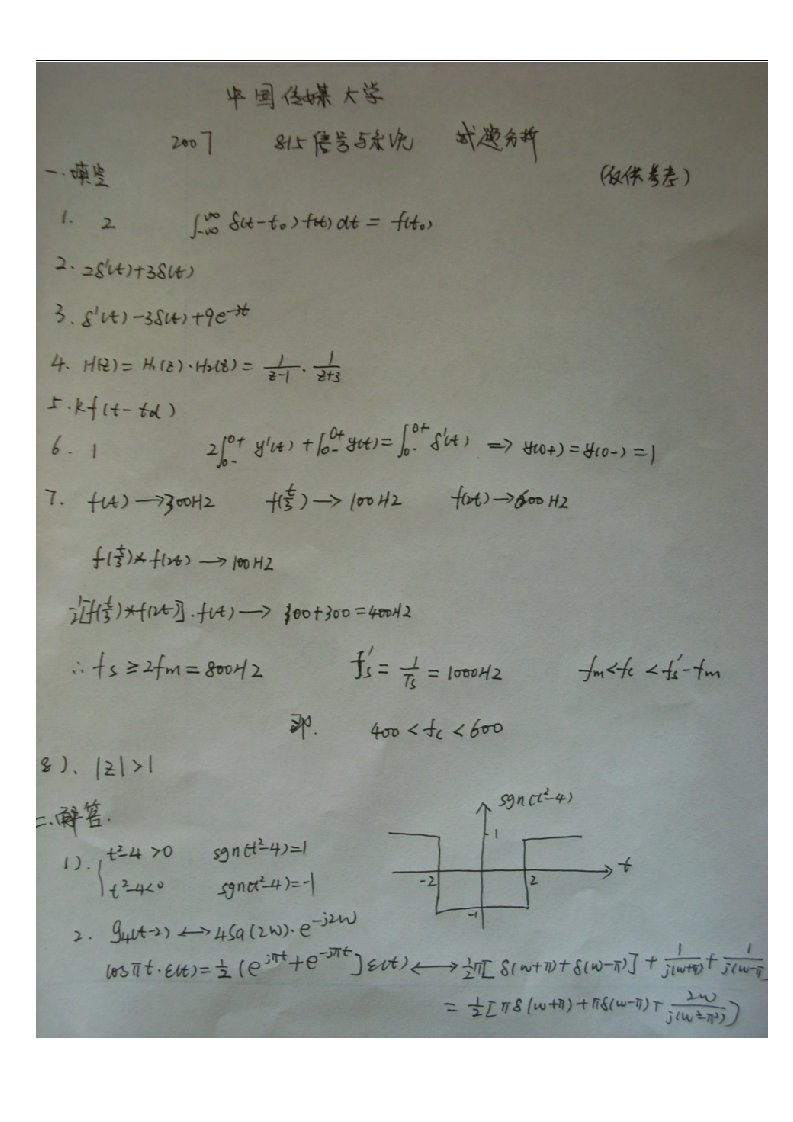 中国传媒大学
2007 815信号与系统 试题分析
一.填空 (仅供参考)
1. 2 ∫_{-∞}^{∞} δ(t-t₀)f(t)dt = f(t₀)
2. 2δ'(t)+3δ(t)
3. δ'(t)-3δ(t)+9e^{-3t}
4. H(z)= H₁(z)·H₂(z)= 1/(z-1) · 1/(z+3)
5. kf(t-td)
6. 1 2∫_{0-}^{0+} y'(t) + ∫_{0-}^{0+} y(t) = ∫_{0-}^{0+} δ'(t) => y(0+)=y(0-)=1
7. f(t) → 300HZ f(t/3) → 100HZ f(2t) → 600HZ
f(t/3)*f(2t) → 100HZ
½[f(t/3)*f(2t)]·f(t) → 100+300=400HZ
∴ fs ≥ 2fm = 800HZ fs' = 1/Ts = 1000HZ fm<fc<fs'-fm
即. 400<fc<600
8). |z|>1
二.解答.
sgn(t²-4)
1
1). { t²-4>0 sgn(t²-4)=1
-2 2 t
t²-4<0 sgn(t²-4)=-1
-1
2. g₄(t-2) ↔ 4Sa(2ω)·e^{-j2ω}
cosπt·ε(t)=½[e^{jπt}+e^{-jπt}]ε(t) ↔ ½π[δ(ω+π)+δ(ω-π)] + 1/j(ω+π) + 1/j(ω-π
= ½[πδ(ω+π)+πδ(ω-π)+ 2ω/j(ω²-π²)]